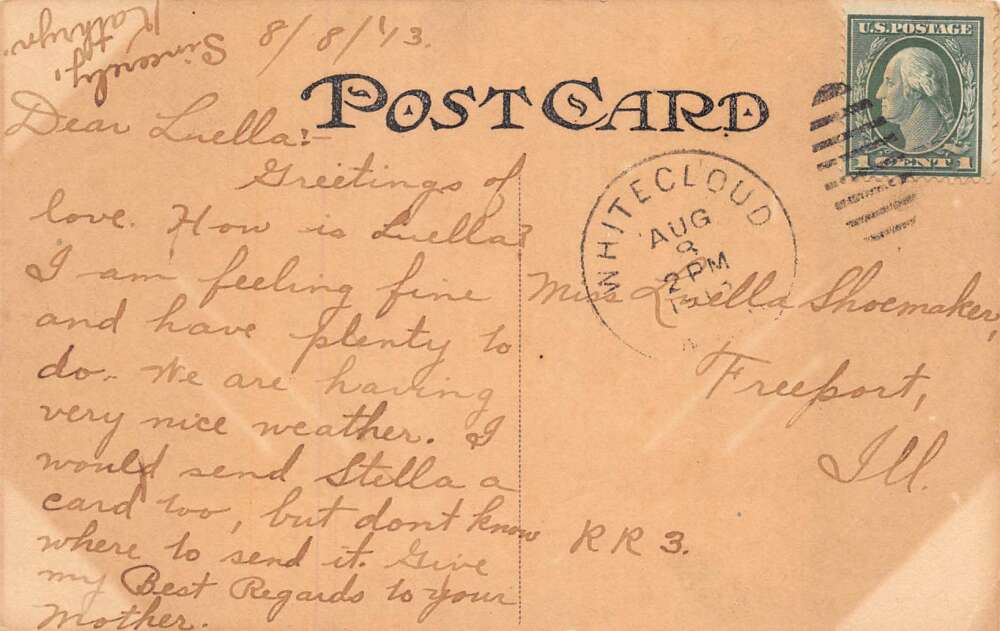 Sincerely,
Kathryn.
8/8/'13.
U.S. POSTAGE
1 CENT 1
POST CARD
WHITECLOUD
AUG
8
2 PM
Dear Luella:-
Greetings of
love. How is Luella?
I am feeling fine
and have plenty to
do. We are having
very nice weather. I
would send Stella a
card too, but dont know
where to send it. Give
my Best Regards to your
Mother.
Miss Luella Shoemaker,
Freeport,
Ill.
R R 3.